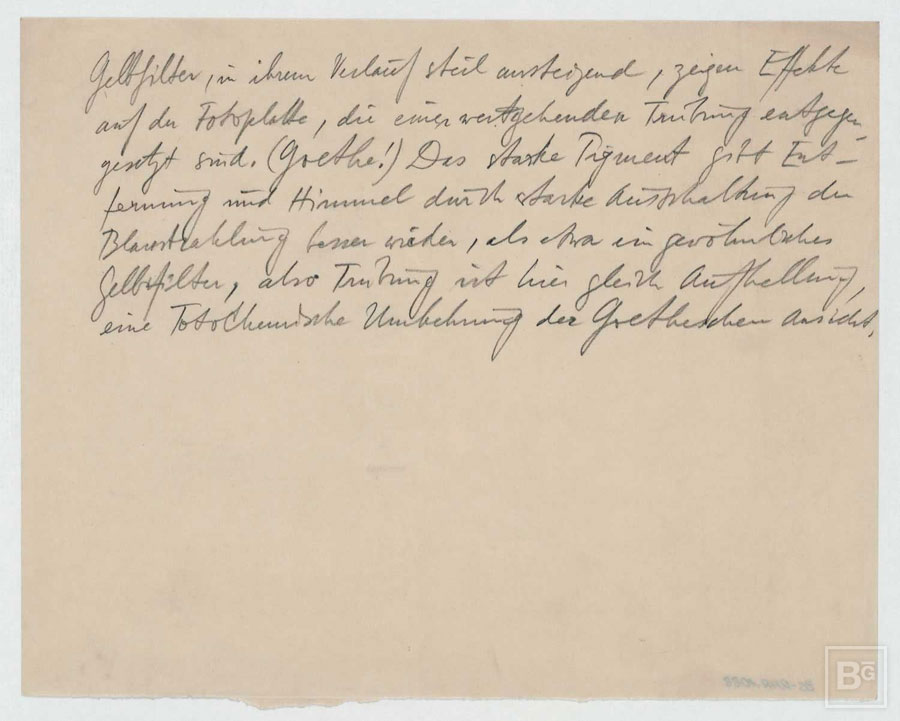 Gelbfilter, in ihrem Verlauf steil ansteigend, zeigen Effekte
auf der Fotoplatte, die einer weitgehenden Trübung entgegen
gesetzt sind. (Goethe!) Das starke Pigment gibt Ent-
fernung und Himmel durch starke Ausschaltung der
Blaustrahlung besser wieder, als etwa ein gewöhnliches
Gelbfilter, also Trübung ist hier gleich Aufhellung,
eine Fotochemische Umkehrung der Goetheschen Ansicht.
BG